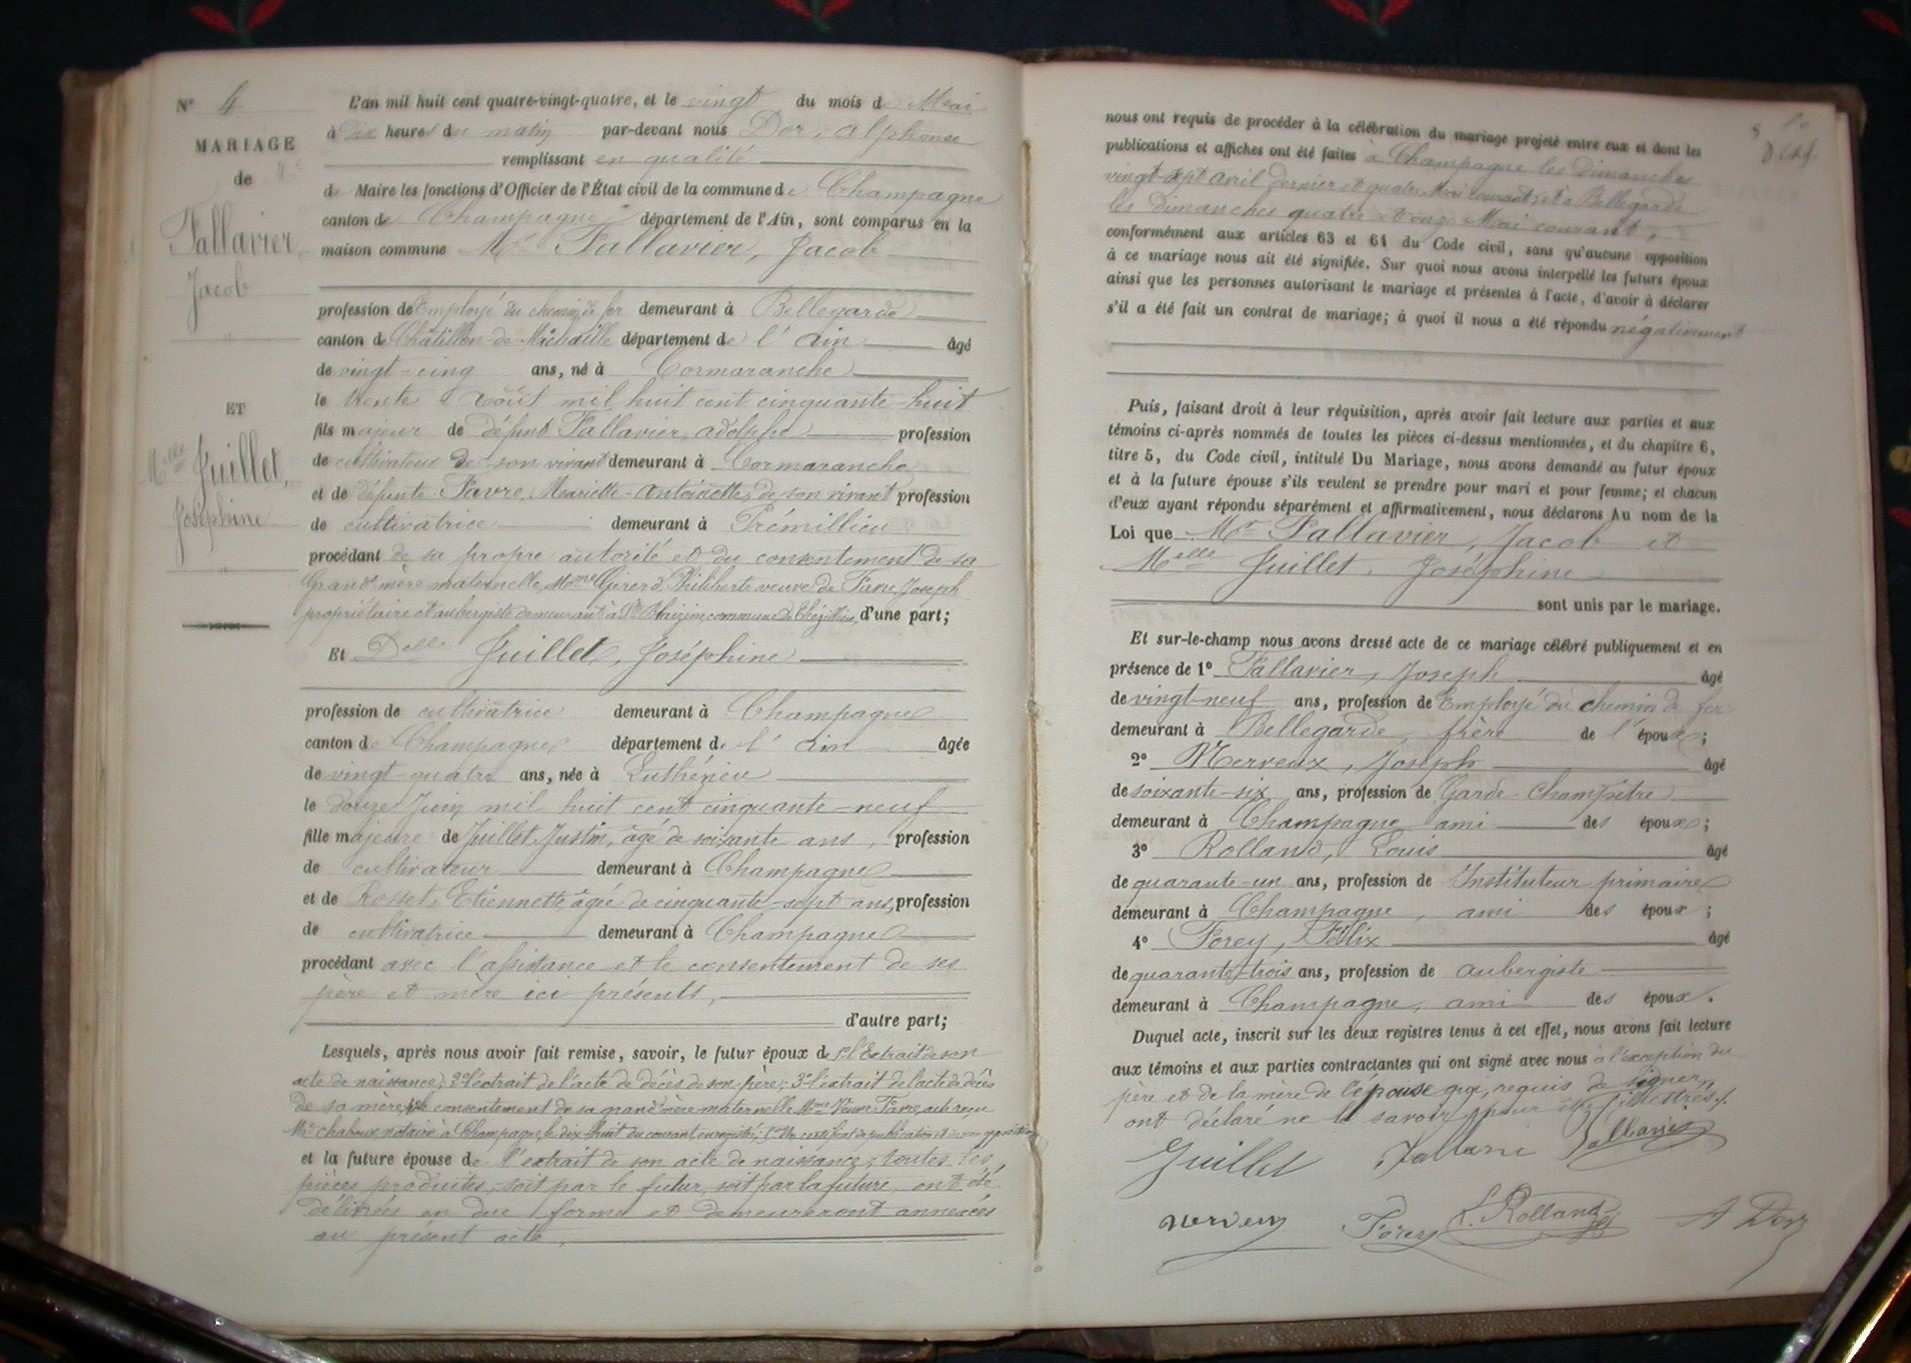 N° 4
MARIAGE
de
Fallavier,
Jacob
ET
Melle Juillet,
Joséphine
L'an mil huit cent quatre-vingt-quatre, et le vingt du mois de Mai
à dix heures du matin par-devant nous Dor, Alphonse
remplissant en qualité
de Maire les fonctions d'Officier de l'État civil de la commune de Champagne
canton de Champagne département de l'Ain, sont comparus en la
maison commune Mr Fallavier, Jacob
profession de Employé du chemin de fer demeurant à Bellegarde
canton de Châtillon-de-Michaille département de l'Ain âgé
de vingt-cinq ans, né à Cormaranche
le trente Août mil huit cent cinquante-huit
fils majeur de défunt Fallavier, Adolphe profession
de cultivateur de son vivant demeurant à Cormaranche
et de défunte Favre, Mariette-Antoinette, de son vivant profession
de cultivatrice demeurant à Prémillieu
procédant de sa propre autorité et du consentement de sa
Grand'mère maternelle, Mme Philiberte veuve de Favre, Joseph
propriétaire et aubergiste demeurant à commune de d'une part;
Et Delle Juillet, Joséphine
profession de cultivatrice demeurant à Champagne
canton de Champagne département de l'Ain âgée
de vingt-quatre ans, née à Luthézieu
le douze Juin mil huit cent cinquante-neuf
fille majeure de Juillet, Justin, âgé de soixante ans, profession
de cultivateur demeurant à Champagne
et de Rosset, Etiennette, âgée de cinquante-sept ans, profession
de cultivatrice demeurant à Champagne
procédant avec l'assistance et le consentement de ses
père et mère ici présents,
d'autre part;
Lesquels, après nous avoir fait remise, savoir, le futur époux de 1° l'Extrait de son
acte de naissance; 2° l'extrait de l'acte de décès de son père; 3° l'extrait de l'acte de décès
de sa mère, le consentement de sa grand'mère maternelle Mme Veuve Favre, acte reçu
Mr Chaboux notaire à Champagne, le dix-huit du courant enregistré; certificat de publication et de non opposition
et la future épouse de l'extrait de son acte de naissance; toutes les
pièces produites, soit par le futur, soit par la future, ont été
délivrées en due forme et demeureront annexées
au présent acte.
nous ont requis de procéder à la célébration du mariage projeté entre eux et dont les
publications et affiches ont été faites à Champagne les Dimanches
vingt-sept Avril dernier et quatre Mai courant, et à Bellegarde
les dimanches quatre et onze Mai courant,
conformément aux articles 63 et 64 du Code civil, sans qu'aucune opposition
à ce mariage nous ait été signifiée. Sur quoi nous avons interpellé les futurs époux
ainsi que les personnes autorisant le mariage et présentes à l'acte, d'avoir à déclarer
s'il a été fait un contrat de mariage; à quoi il nous a été répondu négativement
Puis, faisant droit à leur réquisition, après avoir fait lecture aux parties et aux
témoins ci-après nommés de toutes les pièces ci-dessus mentionnées, et du chapitre 6,
titre 5, du Code civil, intitulé Du Mariage, nous avons demandé au futur époux
et à la future épouse s'ils veulent se prendre pour mari et pour femme; et chacun
d'eux ayant répondu séparément et affirmativement, nous déclarons Au nom de la
Loi que Mr Fallavier, Jacob et
Melle Juillet, Joséphine
sont unis par le mariage.
Et sur-le-champ nous avons dressé acte de ce mariage célébré publiquement et en
présence de 1° Fallavier, Joseph âgé
de vingt-neuf ans, profession de Employé du chemin de fer
demeurant à Bellegarde, frère de l'époux;
2° Merveux, Joseph âgé
de soixante-six ans, profession de Garde-Champêtre
demeurant à Champagne ami des époux;
3° Rolland, Louis âgé
de quarante-un ans, profession de Instituteur primaire
demeurant à Champagne, ami des époux;
4° Forey, Félix âgé
de quarante-trois ans, profession de aubergiste
demeurant à Champagne, ami des époux.
Duquel acte, inscrit sur les deux registres tenus à cet effet, nous avons fait lecture
aux témoins et aux parties contractantes qui ont signé avec nous à l'exception du
père et de la mère de l'épouse qui, requis de signer,
ont déclaré ne le savoir pour être illettrés.
Juillet Fallavier
Merveux Forey L. Rolland A Dor